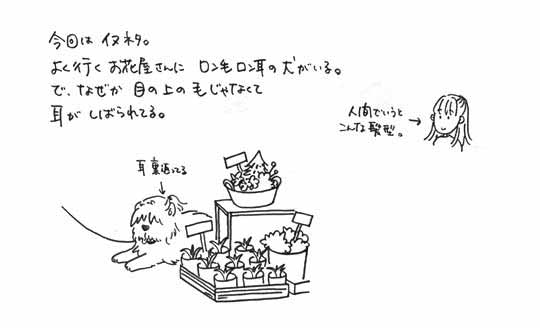 今回は イヌネタ。
よく行く お花屋さんに ロン毛ロン耳の犬がいる。
で、なぜか 目の上の毛じゃなくて
耳が しばられてる。
人間でいうと
こんな髪型。
耳裏返ってる